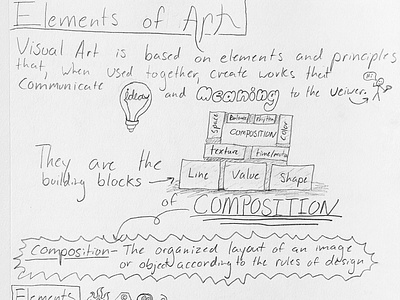 Elements of Art
Visual Art is based on elements and principles
that, when used together, create works that
communicate ideas and meaning to the veiwer.
Hi
Space
Balance
Rhythm
COMPOSITION
Color
texture
time/motion
They are the
building blocks
Line
Value
Shape
of COMPOSITION
Composition - The organized layout of an image
or object according to the rules of design
Elements